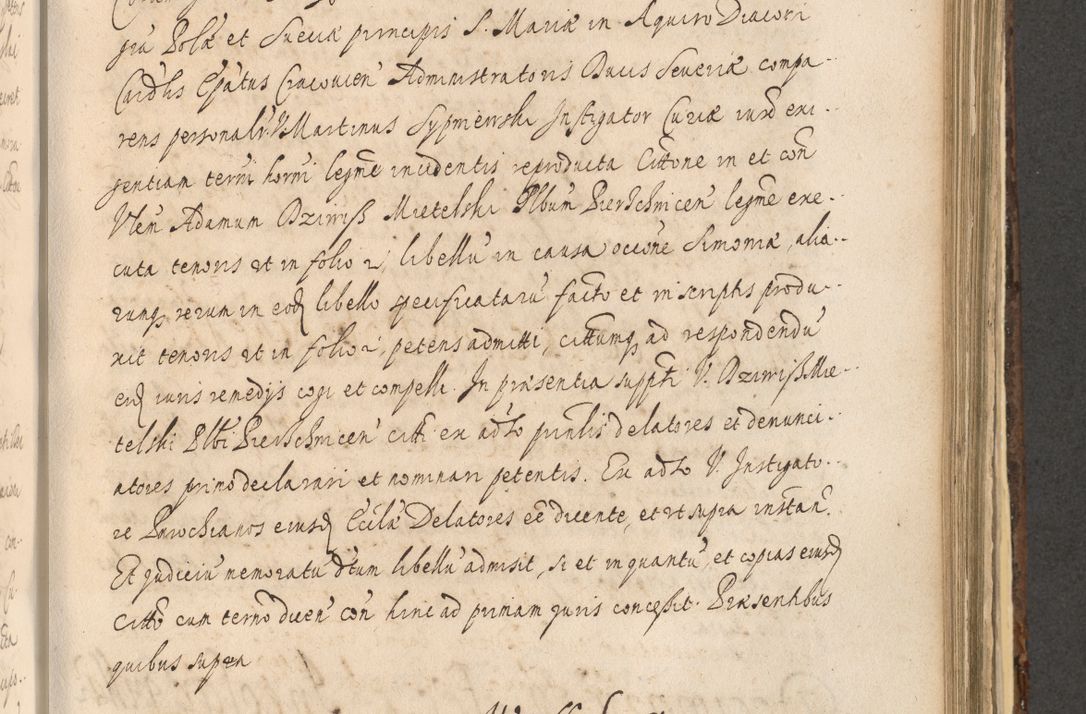 giæ Polæ et Sueciæ principis S. Mariæ in Aquiro Diaconi
Cardlis Epatus Cracovien Administratoris Ducis Severiæ compa-
rens personalr V. Martinus Sypniewski Instigator Curiæ iurd exi-
gentiam termi horni legme incidentis reproducta Cittone in et con
Vlen Adamum Dziwiss Mietelski Plbum Pierschnicen legme exe-
cuta tenoris ut in folio 2, libellu in causa occone Simoniæ, alia-
rumq rerum in eod libello specificataru facto et in scriptis produ-
xit tenoris ut in folio 2, petens admitti, cittumq ad respondendu
eid iuris remedijs cogi et compelli. In præsentia suppti V. Dziwiss Mie-
telski Plbi Pierschnicen citti ex adto punlis delatores et denunci-
atores primo declarari et nominari petentis. Ex adto V. Instigato-
re Parochianos eiusd Ecclæ Delatores ee dicente, et ut supra instan.
Et Judiciu memoratu dtum libellu admisit, si et inquantu, et copias eiusd
citto cum termo dicen con hinc ad primam iuris concessit. Præsentibus
quibus supra